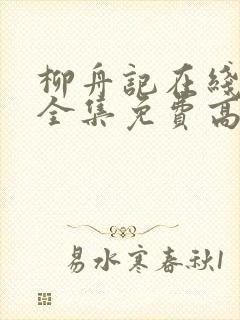 柳舟記在綫
全集免費高
易水寒春秋1